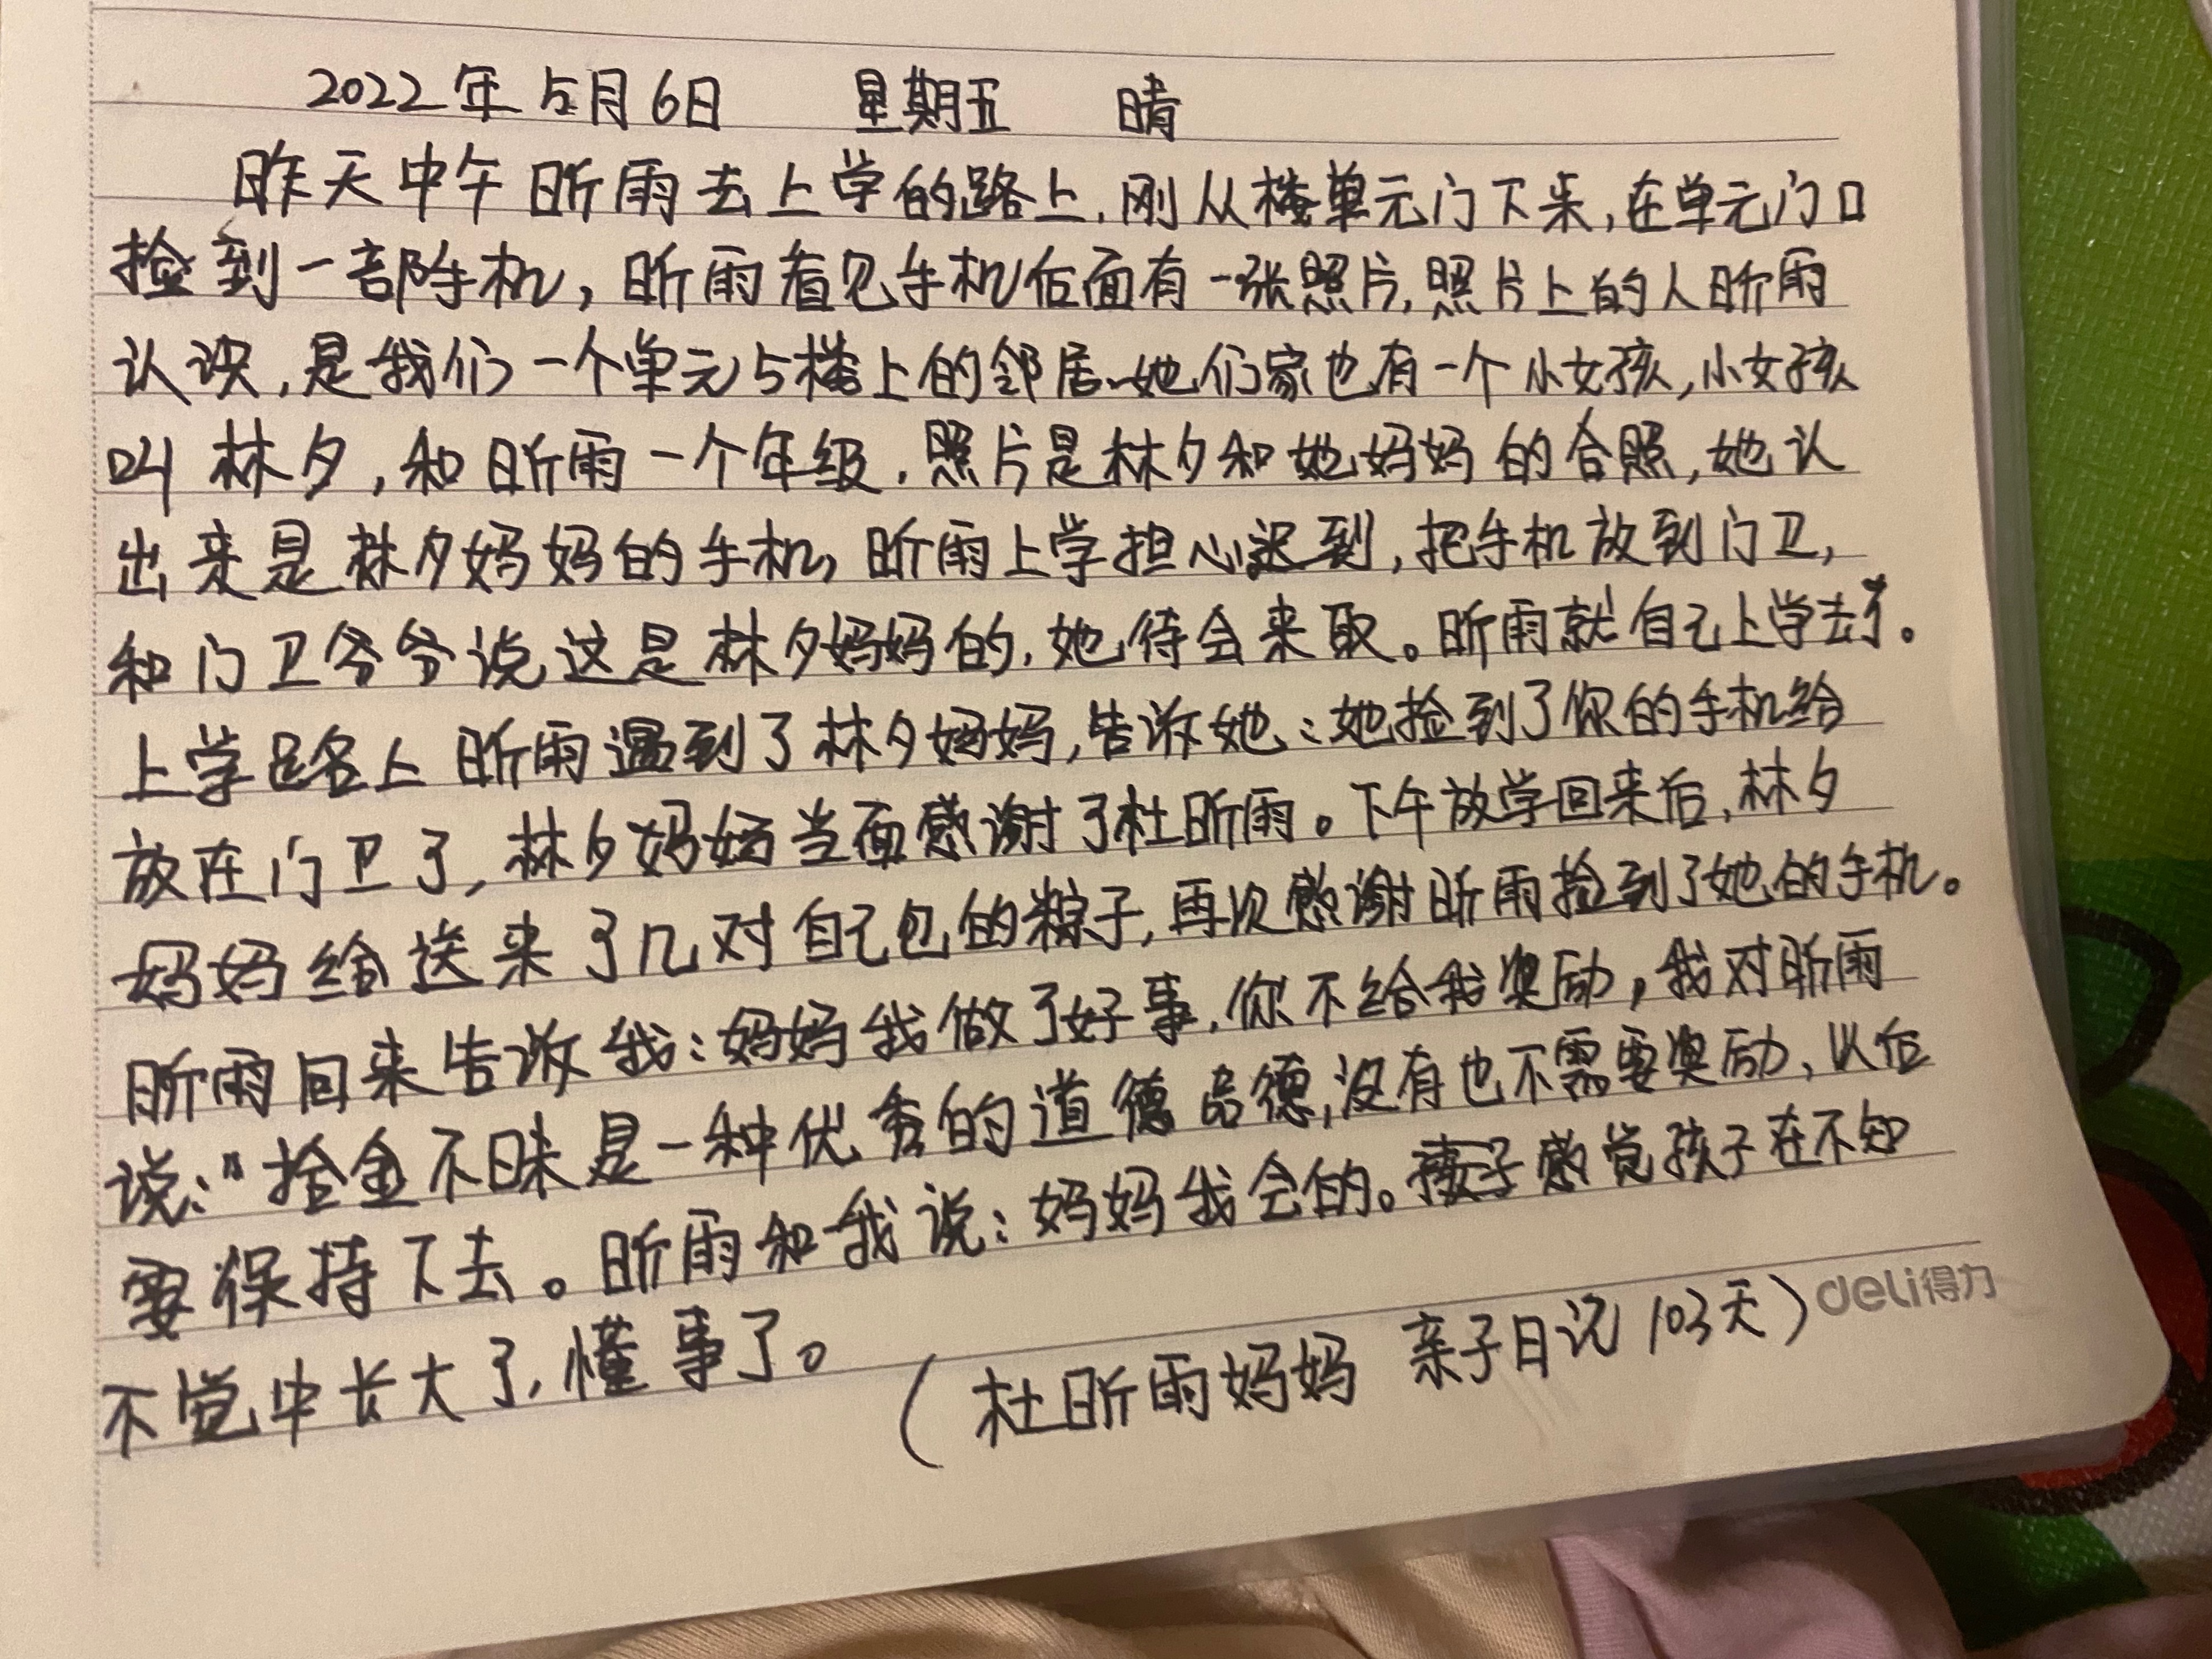 2022年5月6日 星期五 晴
昨天中午昕雨去上学的路上,刚从楼单元门下来,在单元门口
捡到一部手机,昕雨看见手机后面有一张照片,照片上的人昕雨
认识,是我们一个单元5楼上的邻居、她们家也有一个小女孩,小女孩
叫林夕,和昕雨一个年级,照片是林夕和她妈妈的合照,她认
出来是林夕妈妈的手机,昕雨上学担心迟到,把手机放到门卫,
和门卫爷爷说这是林夕妈妈的,她待会来取。昕雨就自己上学去了。
上学路上昕雨遇到了林夕妈妈,告诉她:她捡到了你的手机给
放在门卫了,林夕妈妈当面感谢了杜昕雨。下午放学回来后,林夕
妈妈给送来了几对自己包的粽子,再次感谢昕雨捡到了她的手机。
昕雨回来告诉我:妈妈我做了好事,你不给我奖励,我对昕雨
说:"拾金不昧是一种优秀的道德品德,没有也不需要奖励、以后
要保持下去。昕雨和我说:妈妈我会的。感觉孩子在不知
不觉中长大了,懂事了。
(杜昕雨妈妈 亲子日记103天)
deli得力